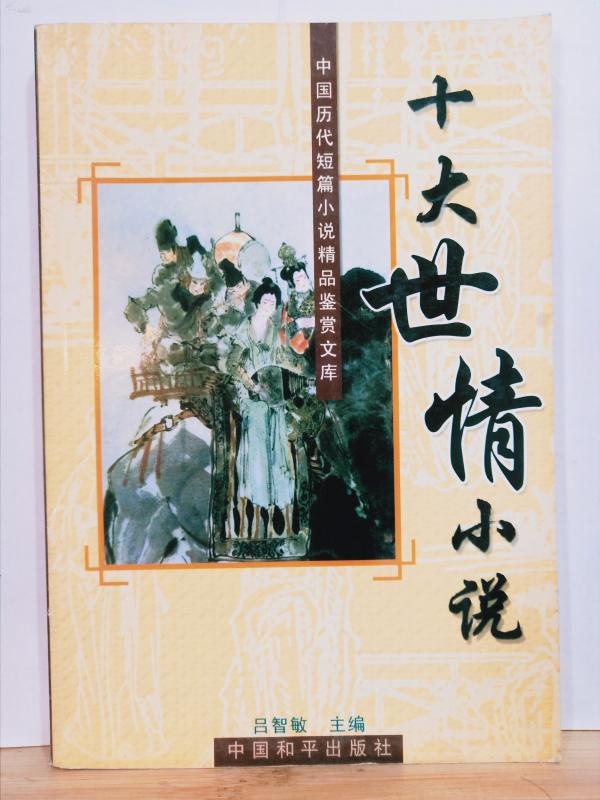 十大世情小说
中国历代短篇小说精品鉴赏文库
吕智敏 主编
中国和平出版社